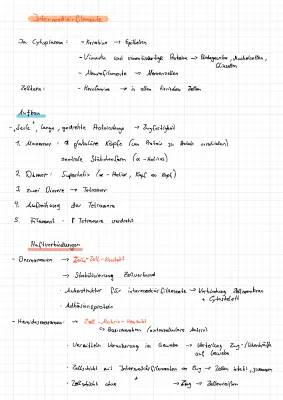 Intermediärfilamente
Im Cytoplasma: - Keratine → Epithelien
- Vimentin und vimentinartige Proteine → Bindegewebe, Muskelzellen,
Gliazellen
- Neurofilamente → Nervenzellen
Zellkern: - Kernlamine → in allen tierischen Zellen
Aufbau
- „Seile“, lange, gedrehte Proteinstränge → Zugfestigkeit
1. Monomer: globuläre Köpfe (von Protein zu Protein verschieden)
zentrale Stäbchenform (α-Helix)
2. Dimer: Superhelix (α-Helix, Kopf an Kopf)
3. zwei Dimere → Tetramer
4. Aufreihung der Tetramere
5. Filament: 8 Tetramere verdreht
Haftverbindungen
- Desmosomen → Zell-Zell-Kontakt
→ Stabilisierung Zellverband
· Ankerstruktur für intermediäre Filamente → Verbindung Zellmembran
+ Cytoskelett
· Adhäsionsprotein
- Hemidesmosomen → Zell-Matrix-Kontakt
↳ Basalmembran / extrazelluläre Matrix
· Vermitteln Verankerung im Gewebe → Verteilung Zug-/Scherkräfte
auf Gewebe
· Zellschicht mit Intermediärfilamenten → Zug → Zellen bleiben zusammen
· Zellschicht ohne → Zug → Zellen reißen